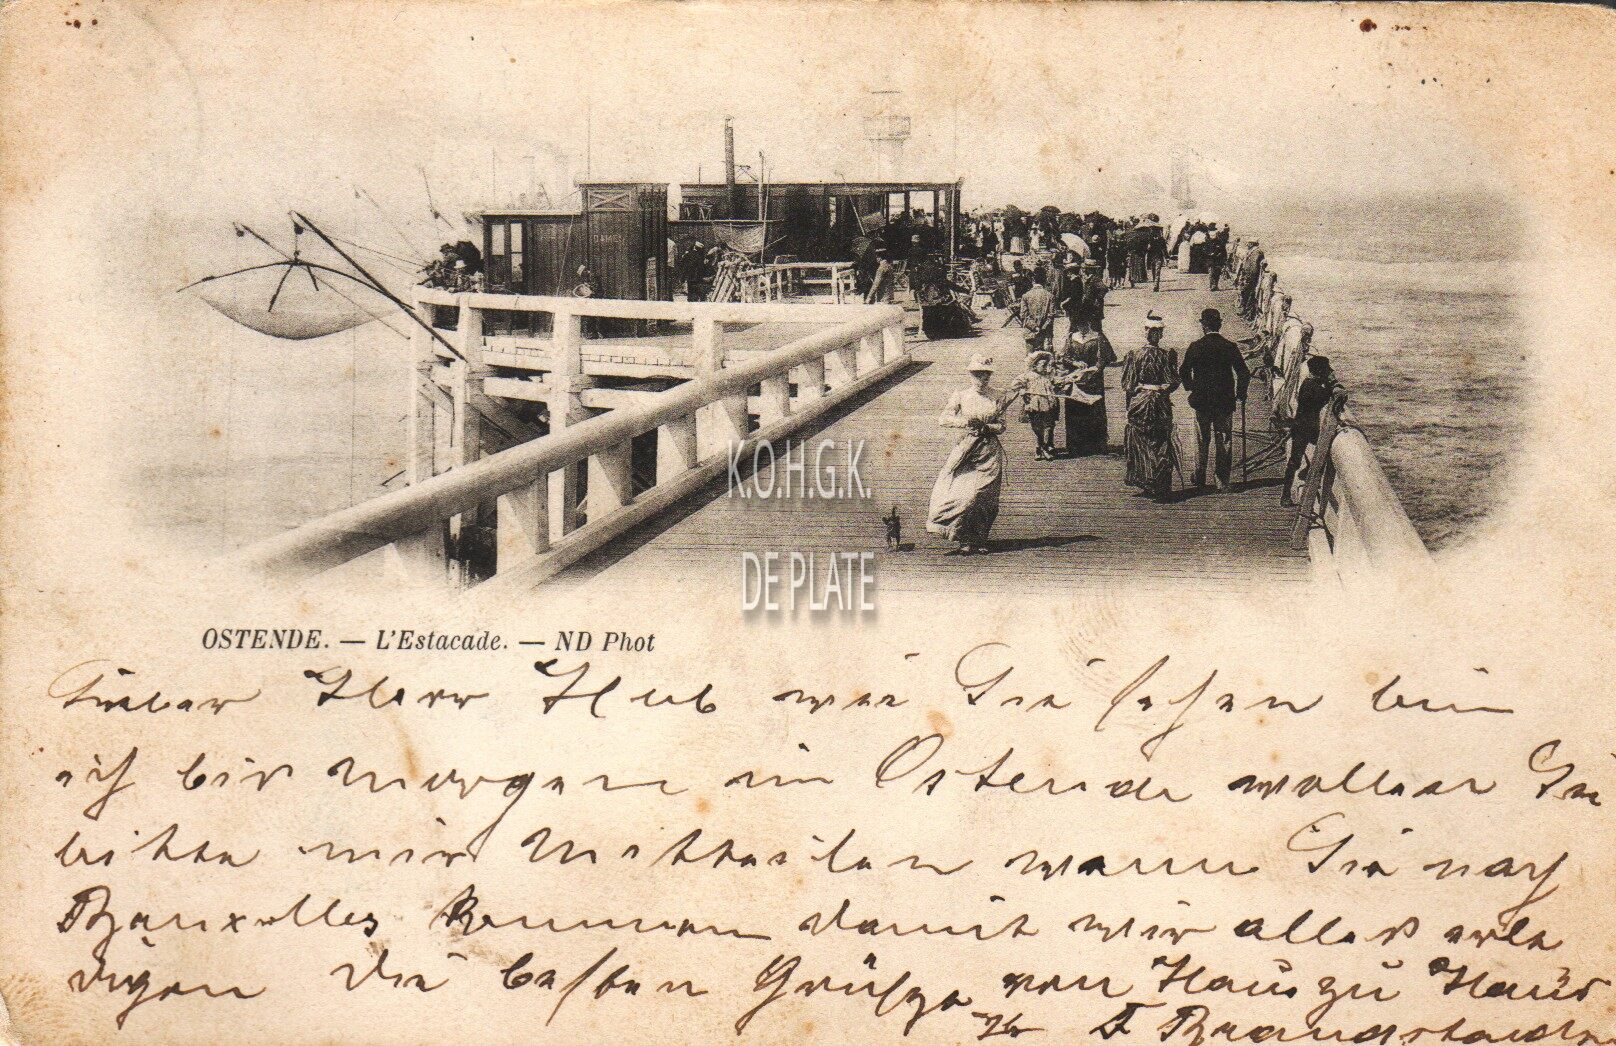 DAMES
K.O.H.G.K.
DE PLATE
OSTENDE. — L'Estacade. — ND Phot
Lieber Herr Hub wie Sie sehen bin
ich bis morgen in Ostende wollen Sie
bitte mir Mitteilen wann Sie nach
Bruxelles kommen damit wir alles erle
digen die besten Grüsse von Haus zu Haus
Ihr